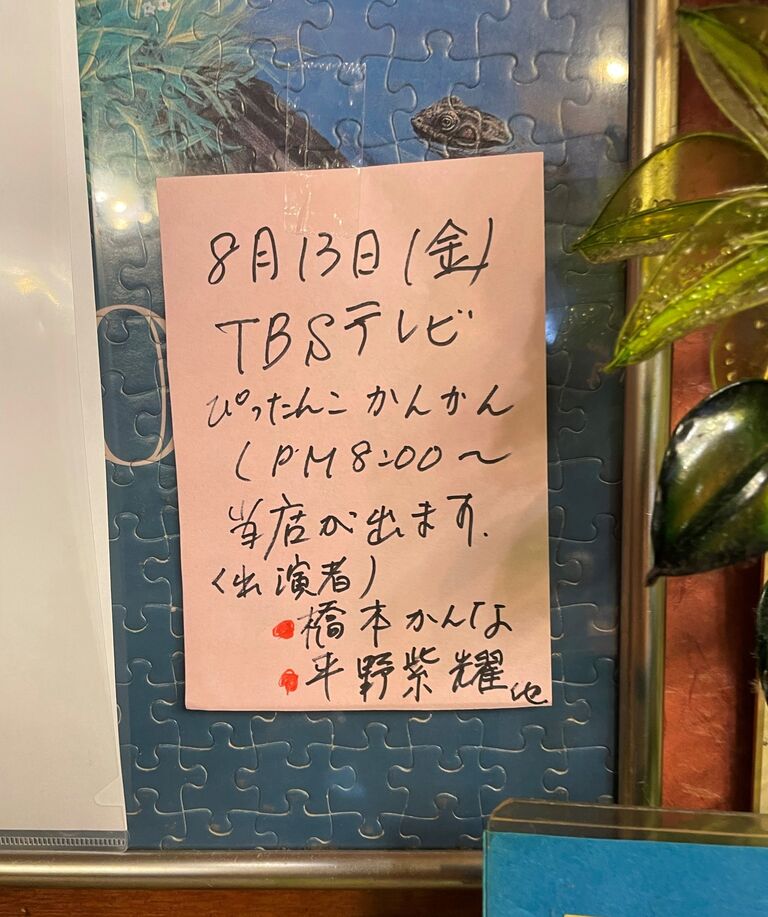 8月13日(金)
TBSテレビ
ぴったんこかんかん
(PM8:00〜
当店が出ます.
(出演者)
橋本かんな
平野紫耀 他